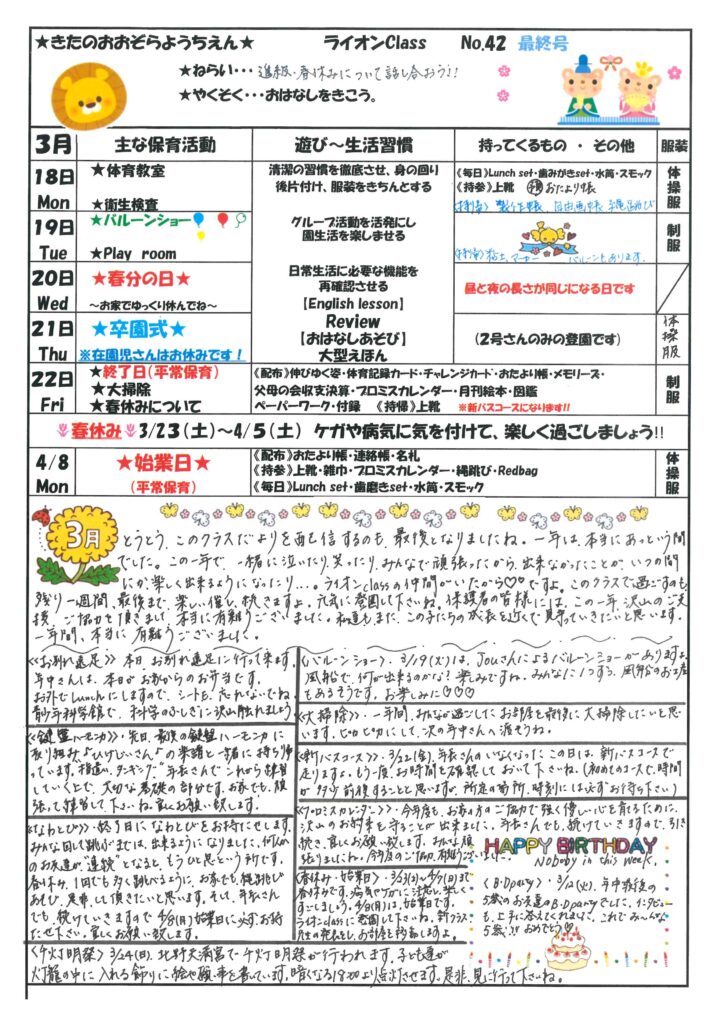 ★きたのおおぞらようちえん★ ライオンClass No.42 最終号
★ねらい・・・進級・春休みについて話し合おう!!
★やくそく・・・おはなしをきこう。
3月 主な保育活動 遊び～生活習慣 持ってくるもの ・ その他 服装
18日 Mon
★体育教室
★衛生検査
清潔の習慣を徹底させ、身の回り
後片付け、服装をきちんとする
《毎日》Lunch set・歯みがきset・水筒・スモック
《持参》上靴 おたより帳
体操服
19日 Tue
★バルーンショー
★Play room
グループ活動を活発にし
園生活を楽しませる
制服
20日 Wed
★春分の日★
～お家でゆっくり休んでね～
日常生活に必要な機能を
再確認させる
【English lesson】
Review
【おはなしあそび】
大型えほん
昼と夜の長さが同じになる日です
21日 Thu
★卒園式★
※在園児さんはお休みです！
(2号さんのみの登園です)
体操服
22日 Fri
★終了日(平常保育)
★大掃除
★春休みについて
《配布》伸びゆく姿・体育記録カード・チャレンジカード・おたより帳・メモリーズ・
父母の会収支決算・プロミスカレンダー・月刊絵本・図鑑
ペーパーワーク・付録 《持帰》上靴 ※新バスコースになります!!
制服
春休み 3/23(土)～4/5(土) ケガや病気に気を付けて、楽しく過ごしましょう!!
4/8 Mon
★始業日★
(平常保育)
《配布》おたより帳・連絡帳・名札
《持参》上靴・雑巾・プロミスカレンダー・縄跳び・Redbag
《毎日》Lunch set・歯磨きset・水筒・スモック
体操服
3月
とうとう、このクラスだよりを配信するのも、最後となりましたね。一年は、本当にあっという間
でした。この一年で、一緒に泣いたり、笑ったり、みんなで頑張ったから、出来なかったことが、いつの間
にか、楽しく出来るようになったり…。ライオンclassの仲間がいたから♡♡ですよ。このクラスで過ごすのも
残り一週間、最後まで、楽しい催し
元気に登園して下さいね。保護者の皆様には、この一年、沢山のご支
援、ご協力を頂きまして、本当に有難うございました。私達も、また、この子たちの成長を近くで見守っていきたいと思います。
一年間、本当に有難うございました。
《お別れ遠足》本日、お別れ遠足に行って来ます。
年中さんは、本日がお家からのお弁当です。
お外でLunchにしますので、シートも、忘れないでね。
青少年科学館で、科学のふしぎに沢山触れましょう
《鍵盤ハーモニカ》先日、最後の鍵盤ハーモニカに
取り組み、"ひげじいさん"の楽譜と一緒に持ち帰
っています。指遣い、タンギング、年長さんで、これから練習
していく上で、大切な基礎の部分です。お家でも、頑
張って練習して下さいね。宜しくお願い致します。
《なわとび》・終了日に、なわとびをお持たせします。
春休み、1回でも多く跳べるように、お家でも、縄跳び
あそび、是非して頂きたいと思います。そして、年長さん
でも、続けていきますので、4/8(月)始業日に、必ずお持
たせ下さい。宜しくお願い致します。
《バルーンショー》・3/19(火)は、Jouさんによるバルーンショーがありますよ。
風船で、何が出来るのかな？楽しみですね。みんなに1つずつ、風船のお土産
もあるそうです。お楽しみに♡♡♡
《大掃除》・一年間、みんなが過ごしたお部屋を最後に大掃除したいと思
います。ピカピカにして、次の年中さんへ渡そうね。
《新バスコース》・3/22(金)、年長さんのいなくなったこの日は、新バスコースで
走りますよ。もう一度、お時間を確認しておいて下さいね。(初めてのコースで、時間
が多少前後することと思いますが、所定の場所、時刻には必ずお待ち下さい)
《プロミスカレンダー》・今年度も、お家の方のご協力で強く優しい心を育てるために、
沢山のお約束を守ることが出来ました。年長さんでも、続けていきますので、引き
続き、宜しくお願い致します。みんな、頑
張りましたね。今年度のご協力、有難うございました。
《春休み・始業日》・3/23(土)～4/7(日)まで
春休みです。病気やケガに注意し、楽しく
すごしましょう。4/8(月)は、始業日です。
ライオンclassに登園して下さいね。新クラス
担任の発表をし、お部屋を移動しますよ。
HAPPY BIRTHDAY
Nobody in this week.
《B.Dparty》・3/12(火)、年中最後の
5歳のお友達のB.Dpartyでした。インタビュー
も、上手に答えてくれました。これで、みんな
5歳!! おめでとう♡
《千灯明祭》3/24(日)、北野天満宮で千灯明祭が行われます。子ども達が
灯籠の中に入れる飾りに絵や願い事を書いています。暗くなる18:00より点灯させます。是非、見に行って下さいね。